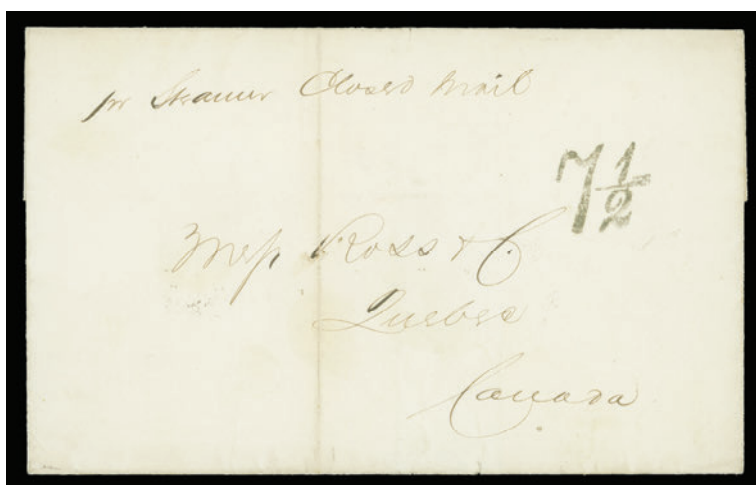 pr Steamer Closed Mail
7 1/2
Mess Ross & C.
Quebec
Canada